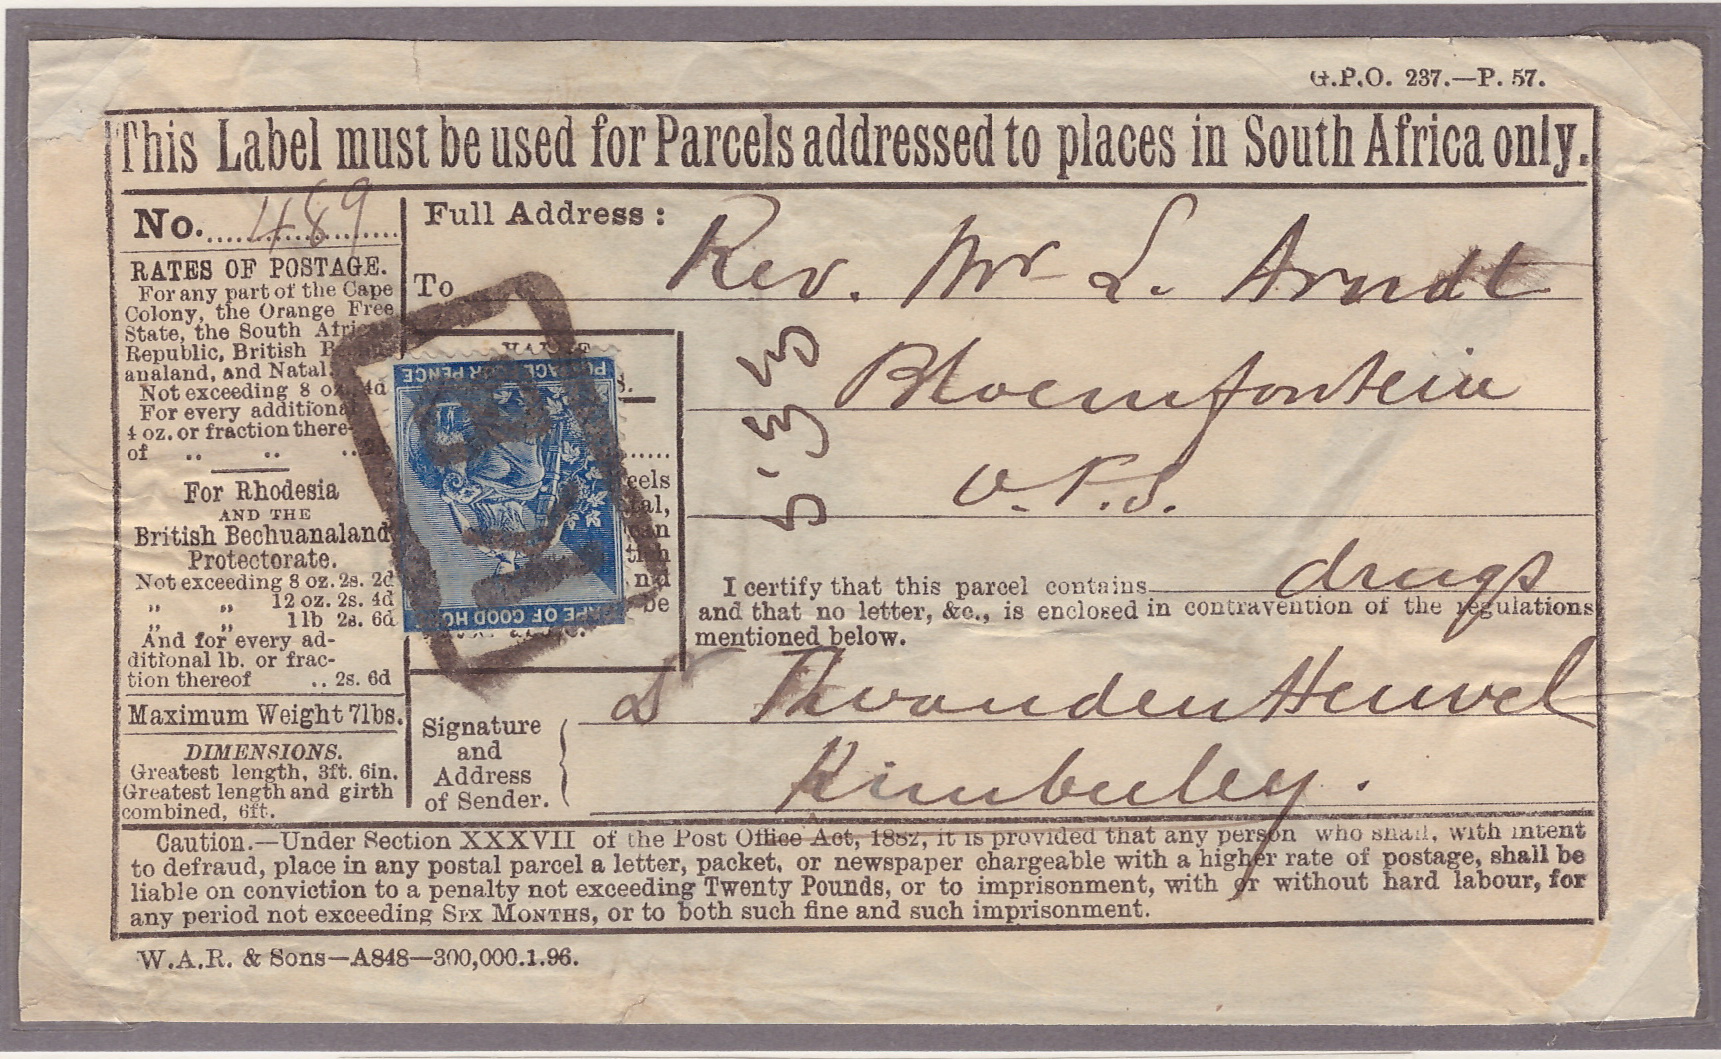 G.P.O. 237.—P. 57.
This Label must be used for Parcels addressed to places in South Africa only.
No. 489
RATES OF POSTAGE.
For any part of the Cape
Colony, the Orange Free
State, the South African
Republic, British
analand, and Natal.
Not exceeding 8 oz. 4d
For every additional
4 oz. or fraction there-
of .. .. ..
For Rhodesia
AND THE
British Bechuanaland
Protectorate.
Not exceeding 8 oz. 2s. 2d
„ „ 12 oz. 2s. 4d
„ „ 1 lb 2s. 6d
And for every ad-
ditional lb. or frac-
tion thereof .. 2s. 6d
Maximum Weight 7lbs.
DIMENSIONS.
Greatest length, 3ft. 6in.
Greatest length and girth
combined, 6ft.
Full Address :
To Rev. Mr L. Arndt
Bloemfontein
O.F.S.
VALUE
POSTAGE FOUR PENCE
CAPE OF GOOD HOPE
I certify that this parcel contains drugs
and that no letter, &c., is enclosed in contravention of the regulations
mentioned below.
Signature
and
Address
of Sender.
Th van den Heuvel
Kimberley.
Caution.—Under Section XXXVII of the Post Office Act, 1882, it is provided that any person who shall, with intent
to defraud, place in any postal parcel a letter, packet, or newspaper chargeable with a higher rate of postage, shall be
liable on conviction to a penalty not exceeding Twenty Pounds, or to imprisonment, with or without hard labour, for
any period not exceeding SIX MONTHS, or to both such fine and such imprisonment.
W.A.R. & Sons—A848—300,000.1.96.